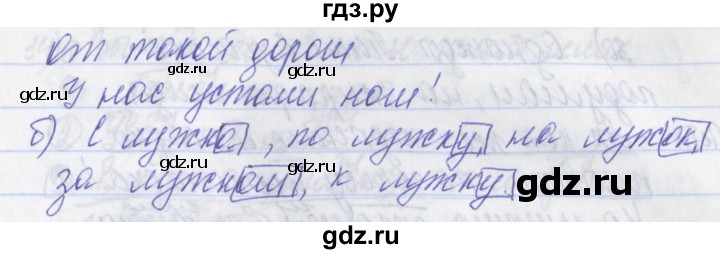 гдз.ру
От такой дороги
gdz.ru gdz.ru
У нас устали ноги!
gdz.ru gdz.ru
б) С лужка, по лужку, на лужок,
за лужком, к лужку.
gdz.ru
gdz.ru gdz.ru